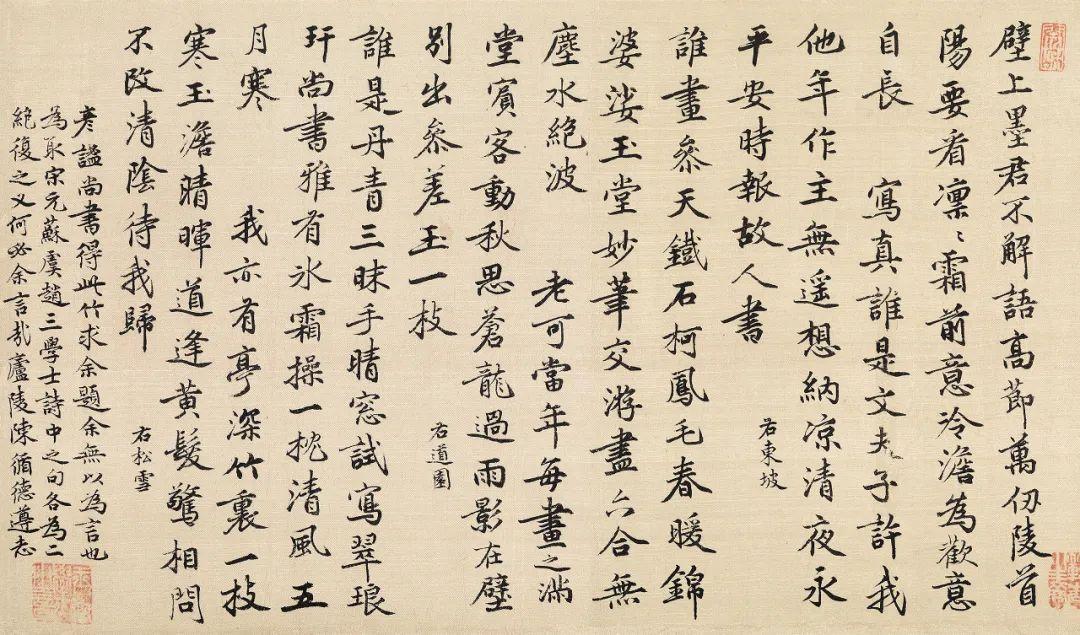 壁上墨君不解語高節萬仞陵首
陽要看凜〻霜前意冷澹為歡意
自長　寫真誰是文夫子許我
他年作主無遥想納凉清夜永
平安時報故人書
右東坡
誰畫參天鐵石柯鳳毛春暖錦
婆娑玉堂妙筆交游盡六合無
塵水絕波　老可當年每畫之滿
堂賓客動秋思蒼龍過雨影在壁
別出參差玉一枝
右道園
誰是丹青三昧手晴窓試寫翠琅
玕尚書雅有氷霜操一枕清風五
月寒　我亦有亭深竹裏一枝
寒玉澹晴暉道逢黃髮驚相問
不改清陰待我歸
右松雪
彥謐尚書得此竹求余題余無以為言也
為取宋元蘇虞趙三學士詩中之句各為二
絕復之又何必余言哉廬陵陳循德遵志